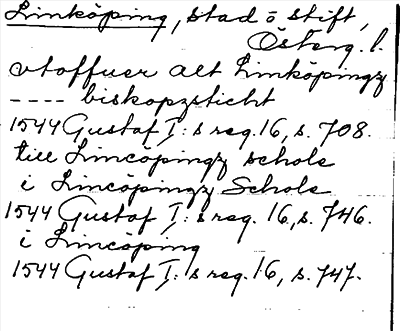 Linköping, stad o stift,
Österg. l.
vtoffuer alt Linköpingz
---- biskopzsticht
1544 Gustaf I:s reg. 16, s. 708.
till Lincöpingz schole
i Linköpingz Schole
1544 Gustaf I:s reg. 16, s. 746.
i Lincöping
1544 Gustaf I:s reg. 16, s. 747.